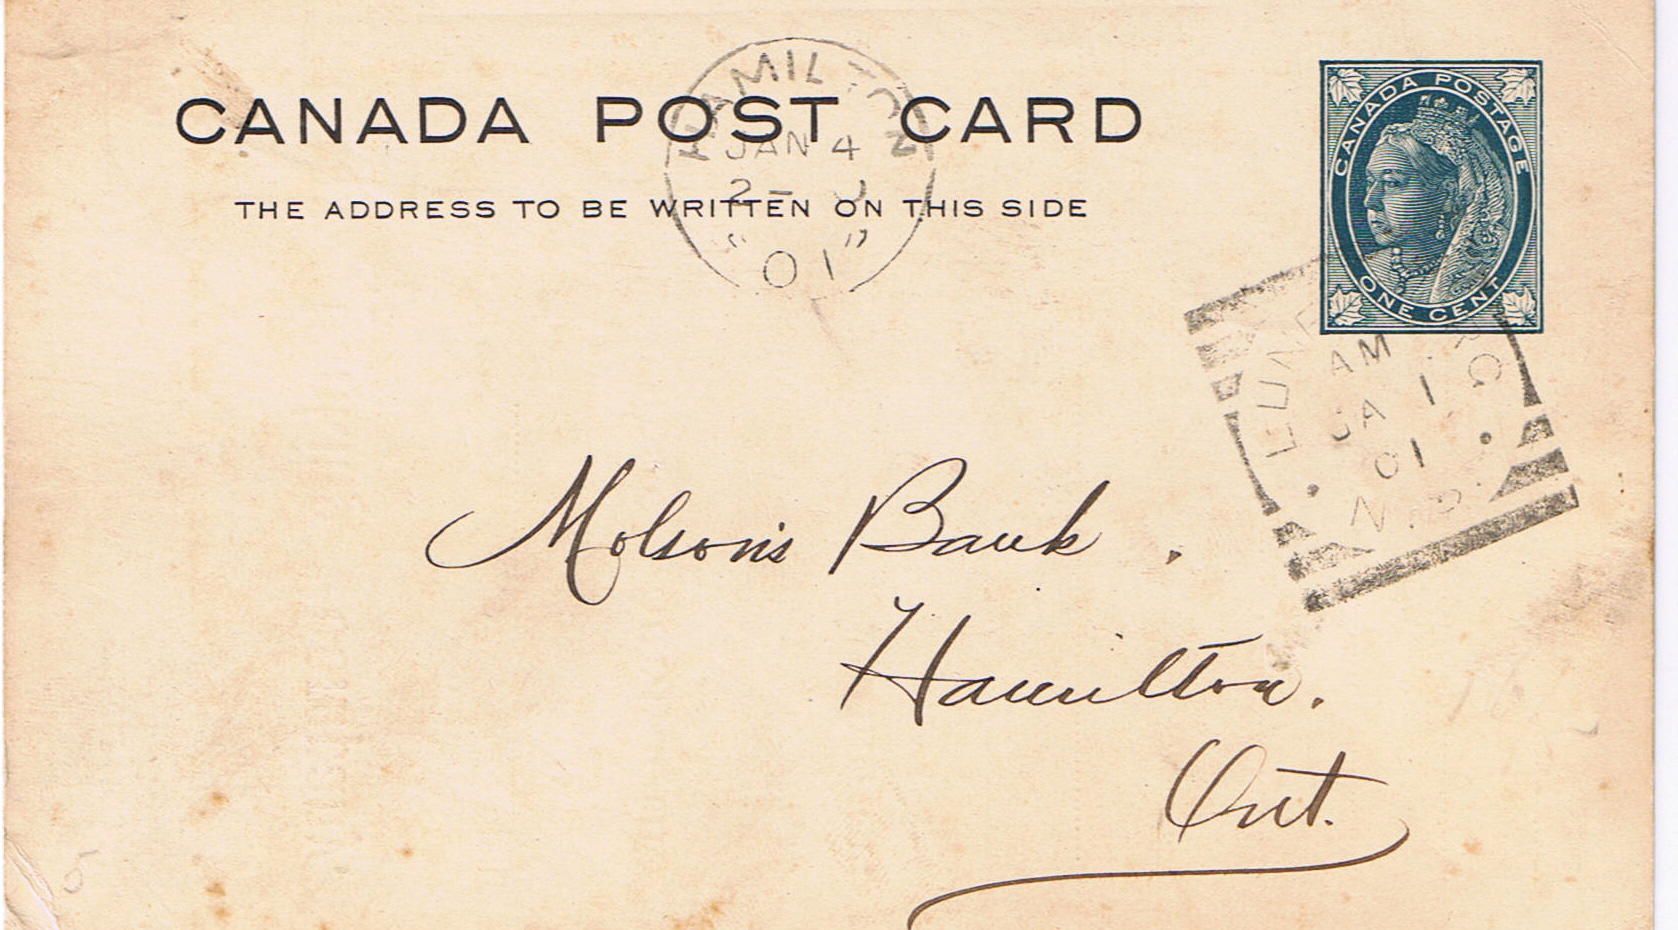 CANADA POST CARD
THE ADDRESS TO BE WRITTEN ON THIS SIDE
HAMILTON
JAN 4
2 –
"01"
CANADA POSTAGE
ONE CENT
AM
JA 1
01
N.
Molson's Bank.
Hamilton.
Ont.
5